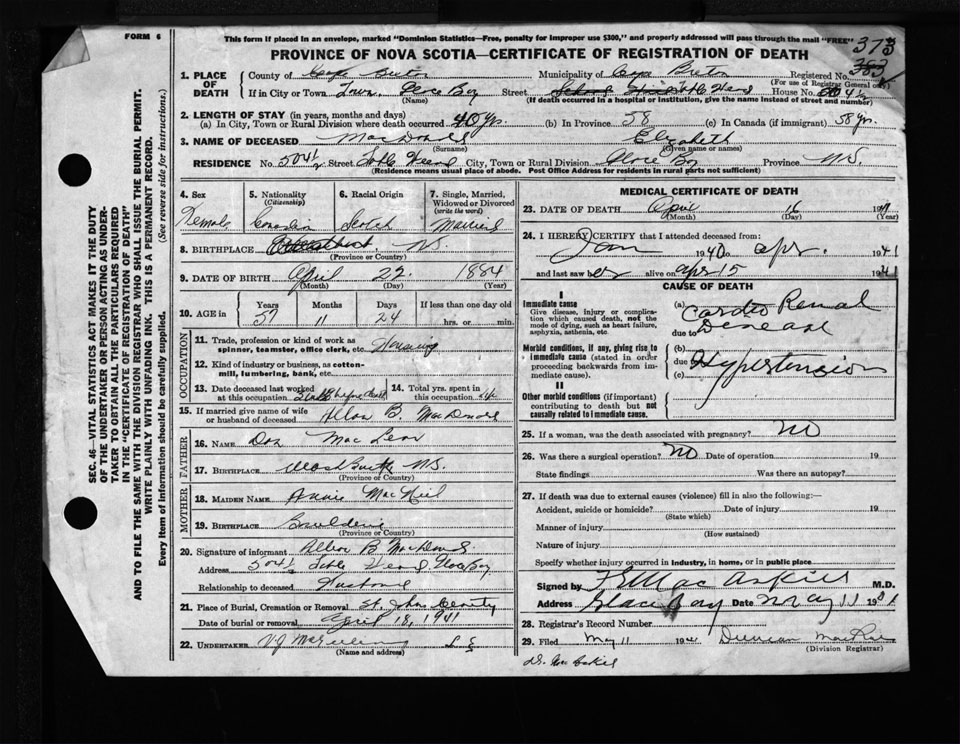 FORM 6
This form if placed in an envelope, marked "Dominion Statistics—Free, penalty for improper use $300," and properly addressed will pass through the mail "FREE" 373
PROVINCE OF NOVA SCOTIA—CERTIFICATE OF REGISTRATION OF DEATH
383
SEC. 46—VITAL STATISTICS ACT MAKES IT THE DUTY
OF THE UNDERTAKER OR PERSON ACTING AS UNDER-
TAKER TO OBTAIN ALL THE PARTICULARS REQUIRED
IN THE "CERTIFICATE OF REGISTRATION OF DEATH"
AND TO FILE THE SAME WITH THE DIVISION REGISTRAR WHO SHALL ISSUE THE BURIAL PERMIT.
WRITE PLAINLY WITH UNFADING INK. THIS IS A PERMANENT RECORD.
Every item of Information should be carefully supplied. (See reverse side for instructions.)
1. PLACE OF DEATH
County of Cape Breton Municipality of Cape Breton Registered No.
(For use of Registrar General only)
If in City or Town, Town Glace Bay Street House No. 504½
(Name) (If death occurred in a hospital or institution, give the name instead of street and number)
2. LENGTH OF STAY (in years, months and days)
(a) In City, Town or Rural Division where death occurred 40 Yrs. (b) In Province 58 (c) In Canada (if immigrant) 58 yrs.
3. NAME OF DECEASED MacDonald Elizabeth
(Surname) (Given name or names)
RESIDENCE No. 504½ Street Table Head City, Town or Rural Division Glace Bay Province N.S.
(Residence means usual place of abode. Post Office Address for residents in rural parts not sufficient)
4. Sex 5. Nationality (Citizenship) 6. Racial Origin 7. Single, Married, Widowed or Divorced (write the word)
Female Canadian Scotch Married
8. BIRTHPLACE N.S.
(Province or Country)
9. DATE OF BIRTH April 22 1884
(Month) (Day) (Year)
10. AGE in Years Months Days If less than one day old
57 11 24 hrs. or min.
OCCUPATION
11. Trade, profession or kind of work as
spinner, teamster, office clerk, etc.
12. Kind of industry or business, as cotton-
mill, lumbering, bank, etc.
13. Date deceased last worked
at this occupation
14. Total yrs. spent in
this occupation
15. If married give name of wife
or husband of deceased Allan B. MacDonald
FATHER
16. NAME Dan MacLean
17. BIRTHPLACE N.S.
(Province or Country)
MOTHER
18. MAIDEN NAME Annie MacNeil
19. BIRTHPLACE
(Province or Country)
20. Signature of informant Allan B MacDonald
Address 504½ Table Head Glace Bay
Relationship to deceased Husband
21. Place of Burial, Cremation or Removal
Date of burial or removal April 18, 1941
22. UNDERTAKER
(Name and address)
MEDICAL CERTIFICATE OF DEATH
23. DATE OF DEATH April 16 1941
(Month) (Day) (Year)
24. I HEREBY CERTIFY that I attended deceased from:
Jan 1940 to apr. 1941
and last saw her alive on apr 15 1941
CAUSE OF DEATH
I
Immediate cause
Give disease, injury or complica-
tion which caused death, not the
mode of dying, such as heart failure,
asphyxia, asthenia, etc.
(a) Cardio Renal
due to Disease
Morbid conditions, if any, giving rise to
immediate cause (stated in order
proceeding backwards from im-
mediate cause).
(b)
due to Hypertension
(c)
II
Other morbid conditions (if important)
contributing to death but not
causally related to immediate cause.
25. If a woman, was the death associated with pregnancy? No
26. Was there a surgical operation? No Date of operation 19
State findings Was there an autopsy?
27. If death was due to external causes (violence) fill in also the following:—
Accident, suicide or homicide? Date of injury 19
(State which)
Manner of injury
(How sustained)
Nature of injury
Specify whether injury occurred in industry, in home, or in public place
Signed by MacAskill M.D.
Address Glace Bay Date May 11 1941
28. Registrar's Record Number
29. Filed May 11 1941 Duncan MacRae
(Division Registrar)